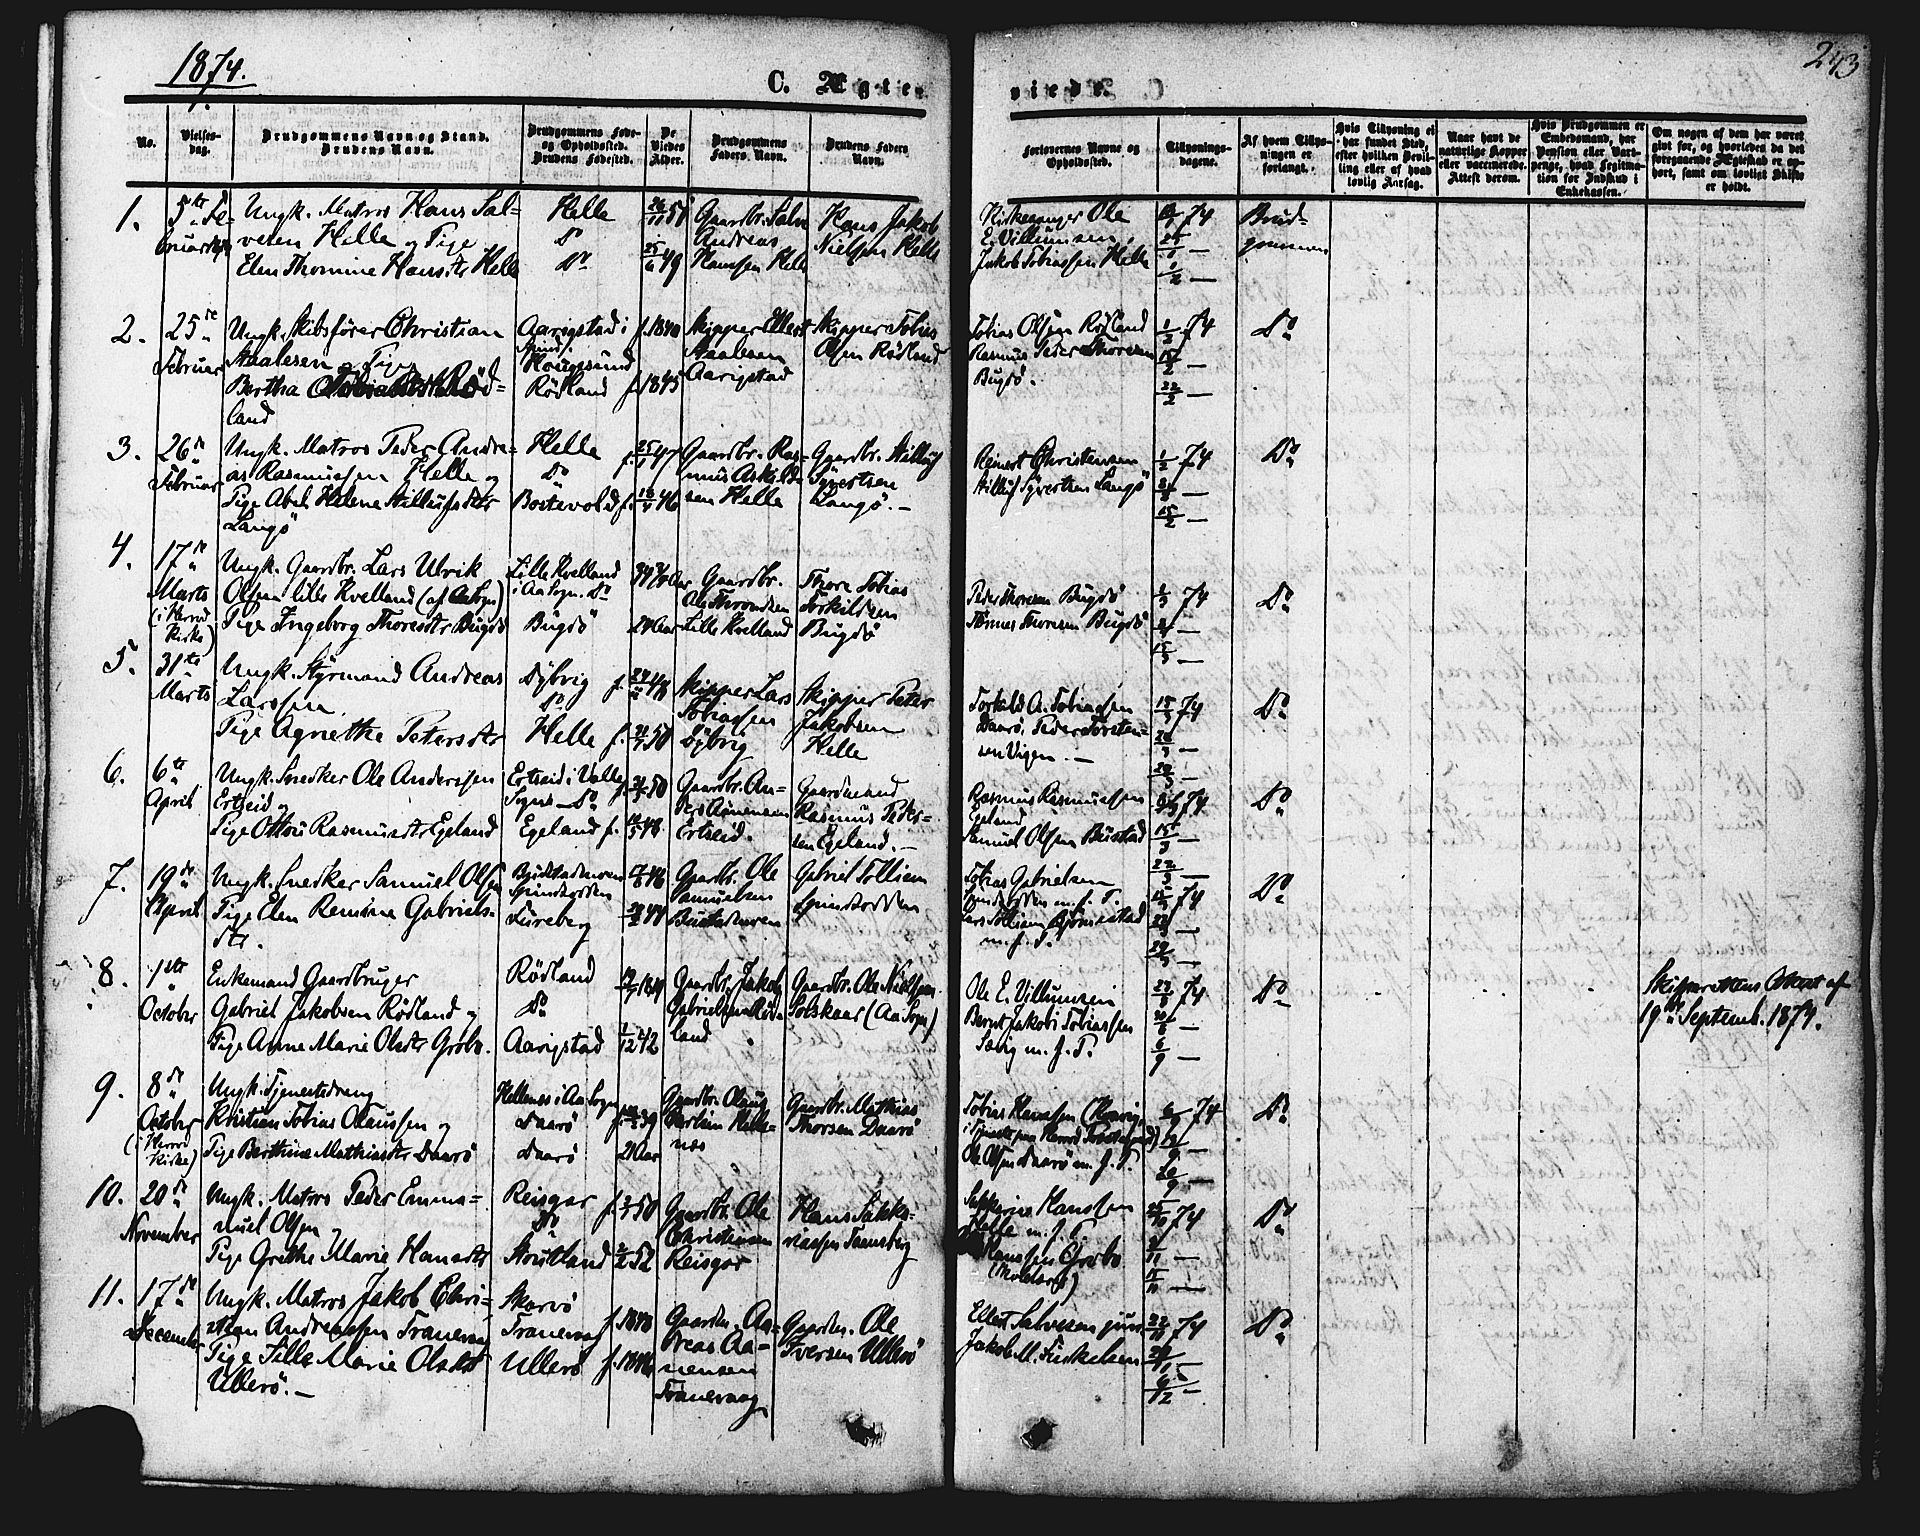 1874.
243
C. Ægteviede.
No.
Vielsesdag.
Brudgommens Navn og Stand.
Brudens Navn.
Brudgommens Føde-
og Opholdssted.
Brudens Fødested.
De
Viedes
Alder.
Brudgommens
Faders Navn.
Brudens Faders
Navn.
Forlovernes Navne og
Opholdssted.
Tillysnings-
dagene.
Af hvem Tillys-
ningen er
forlangt.
Hvis Tillysning ei
har fundet Sted,
efter hvilken Bevil-
ling eller af hvad
lovlig Aarsag.
Naar havt de
naturlige Kopper
eller vaccinerede.
Attest derom.
Hvis Brudgommen er
Embedsmand, har
Pension eller Vart-
penge, hvad Legitima-
tion for Indskud i
Enkekassen.
Om nogen af dem har været
gift før, og hvorledes da det
foregaaende Ægteskab er op-
hørt, samt om lovligt Skifte
er holdt.
1.
5te Fe-
bruar
Ungk. Matros Hans Sal-
vesen Helle og Pige
Elen Thomine Hansdtr Helle
Helle
Do
Do
26/11 51
25/6 49
Gaardbr. Salve
Andreas
Hanssen Helle
Hans Jakob
Nielsen Helle
Kirkesanger Ole
E. Villumsen
Jakob Tobiassen Helle
74
25/1 —
1/2 —
Brud-
gommen
2.
25de
Februar
Ungk. Skibsfører Christian
Staalesen og Pige
Bertha Rød-
land
Aarigstad i
Spind,
Rødland
f. 1840
f. 1845
Skipper Ellert
Staalesen
Aarigstad
Skipper Tobias
Olsen Rødland
Tobias Olsen Rødland
Rasmus Peder Thoresen
Bugdø.
1/2 74
15/2
22/2 —
Do
3.
26de
Februar
Ungk. Matros Peder Andre-
as Rasmussen Helle og
Pige Abel Helene Stillufsdtr
Langø
Helle
Do
Bostevold
f. 25/1 47
f. 46
Gaardbr. Ras-
mus Askilds-
sen Helle
Gaardbr. Stilluf
Syvertsen
Langø. —
Reinert Christensen
Stilluf Syvertsen Langø
1/2 74
8/2 —
15/2 —
Do
4.
17de
Marts
(i Herred
Kirke)
Ungk. Gaardbr. Lars Ulrik
Olsen lille Kvelland (af Aa Sogn)
Pige Ingeborg Thoresdtr Bugdø
Lille Kvelland
i Aa Sogn. Do
Bugdø
24 Aar
Gaardbr.
Ole Throndsen
Lille Kvelland
Thore Tobias
Torkildsen
Bugdø
Peder Thoresen Bugdø
Tønnes Thoresen Bugdø
1/3 74
8/3 —
15/3 —
Do
5.
31te
Marts
Ungk. Styrmand Andreas
Larssen
Pige Agnethe Petersdtr
Dybvig
Do
Helle
f. 48
f. 50
Skipper Lars
Tobiassen
Dybvig
Skipper Peter
Jakobsen
Helle
Torkild A. Tobiassen
Daarø. Peder Torsten-
sen Vigen. —
15/3 74
—
—
Do
6.
6te
April
Ungk. Snedker Ole Anderssen
Ertseid og
Pige Ottow Rasmusdtr Egeland
Ertseid i Valle
Sogn — Do
Egeland
50
f. 48
Gaardbr. An-
ders Aanensen
Ertseid.
Gaardmand
Rasmus Peder-
sen Egeland. —
Rasmus Rasmussen
Egeland
Samuel Olsen Bustad
8/3 74
15/3
22/3 —
Do
7.
19de
April
Ungk. Snedker Samuel Olsen
Pige Elen Remine Gabriels-
dtr.
Spindsodden
Lureberg
46
44
Gaardbr. Ole
Samuelsen
Gabriel Tolliсен
Spindsodden
Tobias Gabrielsen
Spindsodden m. f. P.
m. f. P.
15/3 74
22/3 —
29/3
Do
8.
1ste
October
Enkemand Gaardbruger
Gabriel Jakobsen Rødland og
Pige Anne Marie Olsdtr Grøbo.
Rødland
Do
Aarigstad
1/12 42
Gaardbr. Jakob
Gabrielsen Rød-
land
Gaardbr. Ole Nielsen
Solskaar (Aa Sogn)
Ole E. Villumsen
Bernt Jakob Tobiassen
m. f. P.
74
30/8 —
6/9 —
Do
Skifterettens Attest af
19de Septemb. 1874.
9.
8de
October
(i Herred
Kirke)
Ungk. Tjenestedreng
Kristian Tobias Olaussen og
Pige Berthine Mathiasdtr Daarø
Hellenes i Aa Sogn
Daarø
Daarø
39
21 Aar
Gaardbr. Olaus
Helle-
næs
Gaardbr. Mathias
Thorsen Daarø
Tobias Hanssen
Ole Olsen Daarø m. f. P.
74
20/9 —
Do
10.
20de
November
Ungk. Matros Peder Emma-
nuel Olsen og
Pige Grethe Marie Hansdtr
Reisgar
Do
Strutland
50
52
Gaardbr. Ole
Christensen
Reisgar
Hans Sakka-
riassen
Sakkarias Hanssen
m. f. P.
Hanssen Grøbo
74
—
—
Do
11.
17de
December
Ungk. Matros Jakob Chri-
stian Andreassen Tranevaag
Pige Sille Marie Olsdtr
Ullerø. —
Skarvø
Tranevaag
Ullerø
f. 1848
f. 1846
Gaardm. An-
dreas Aa-
nensen
Tranevaag
Gaardm. Ole
Iversen Ullerø
Ellert Salvesen jun
Jakob M. Tuskelsen
74
—
—
Do